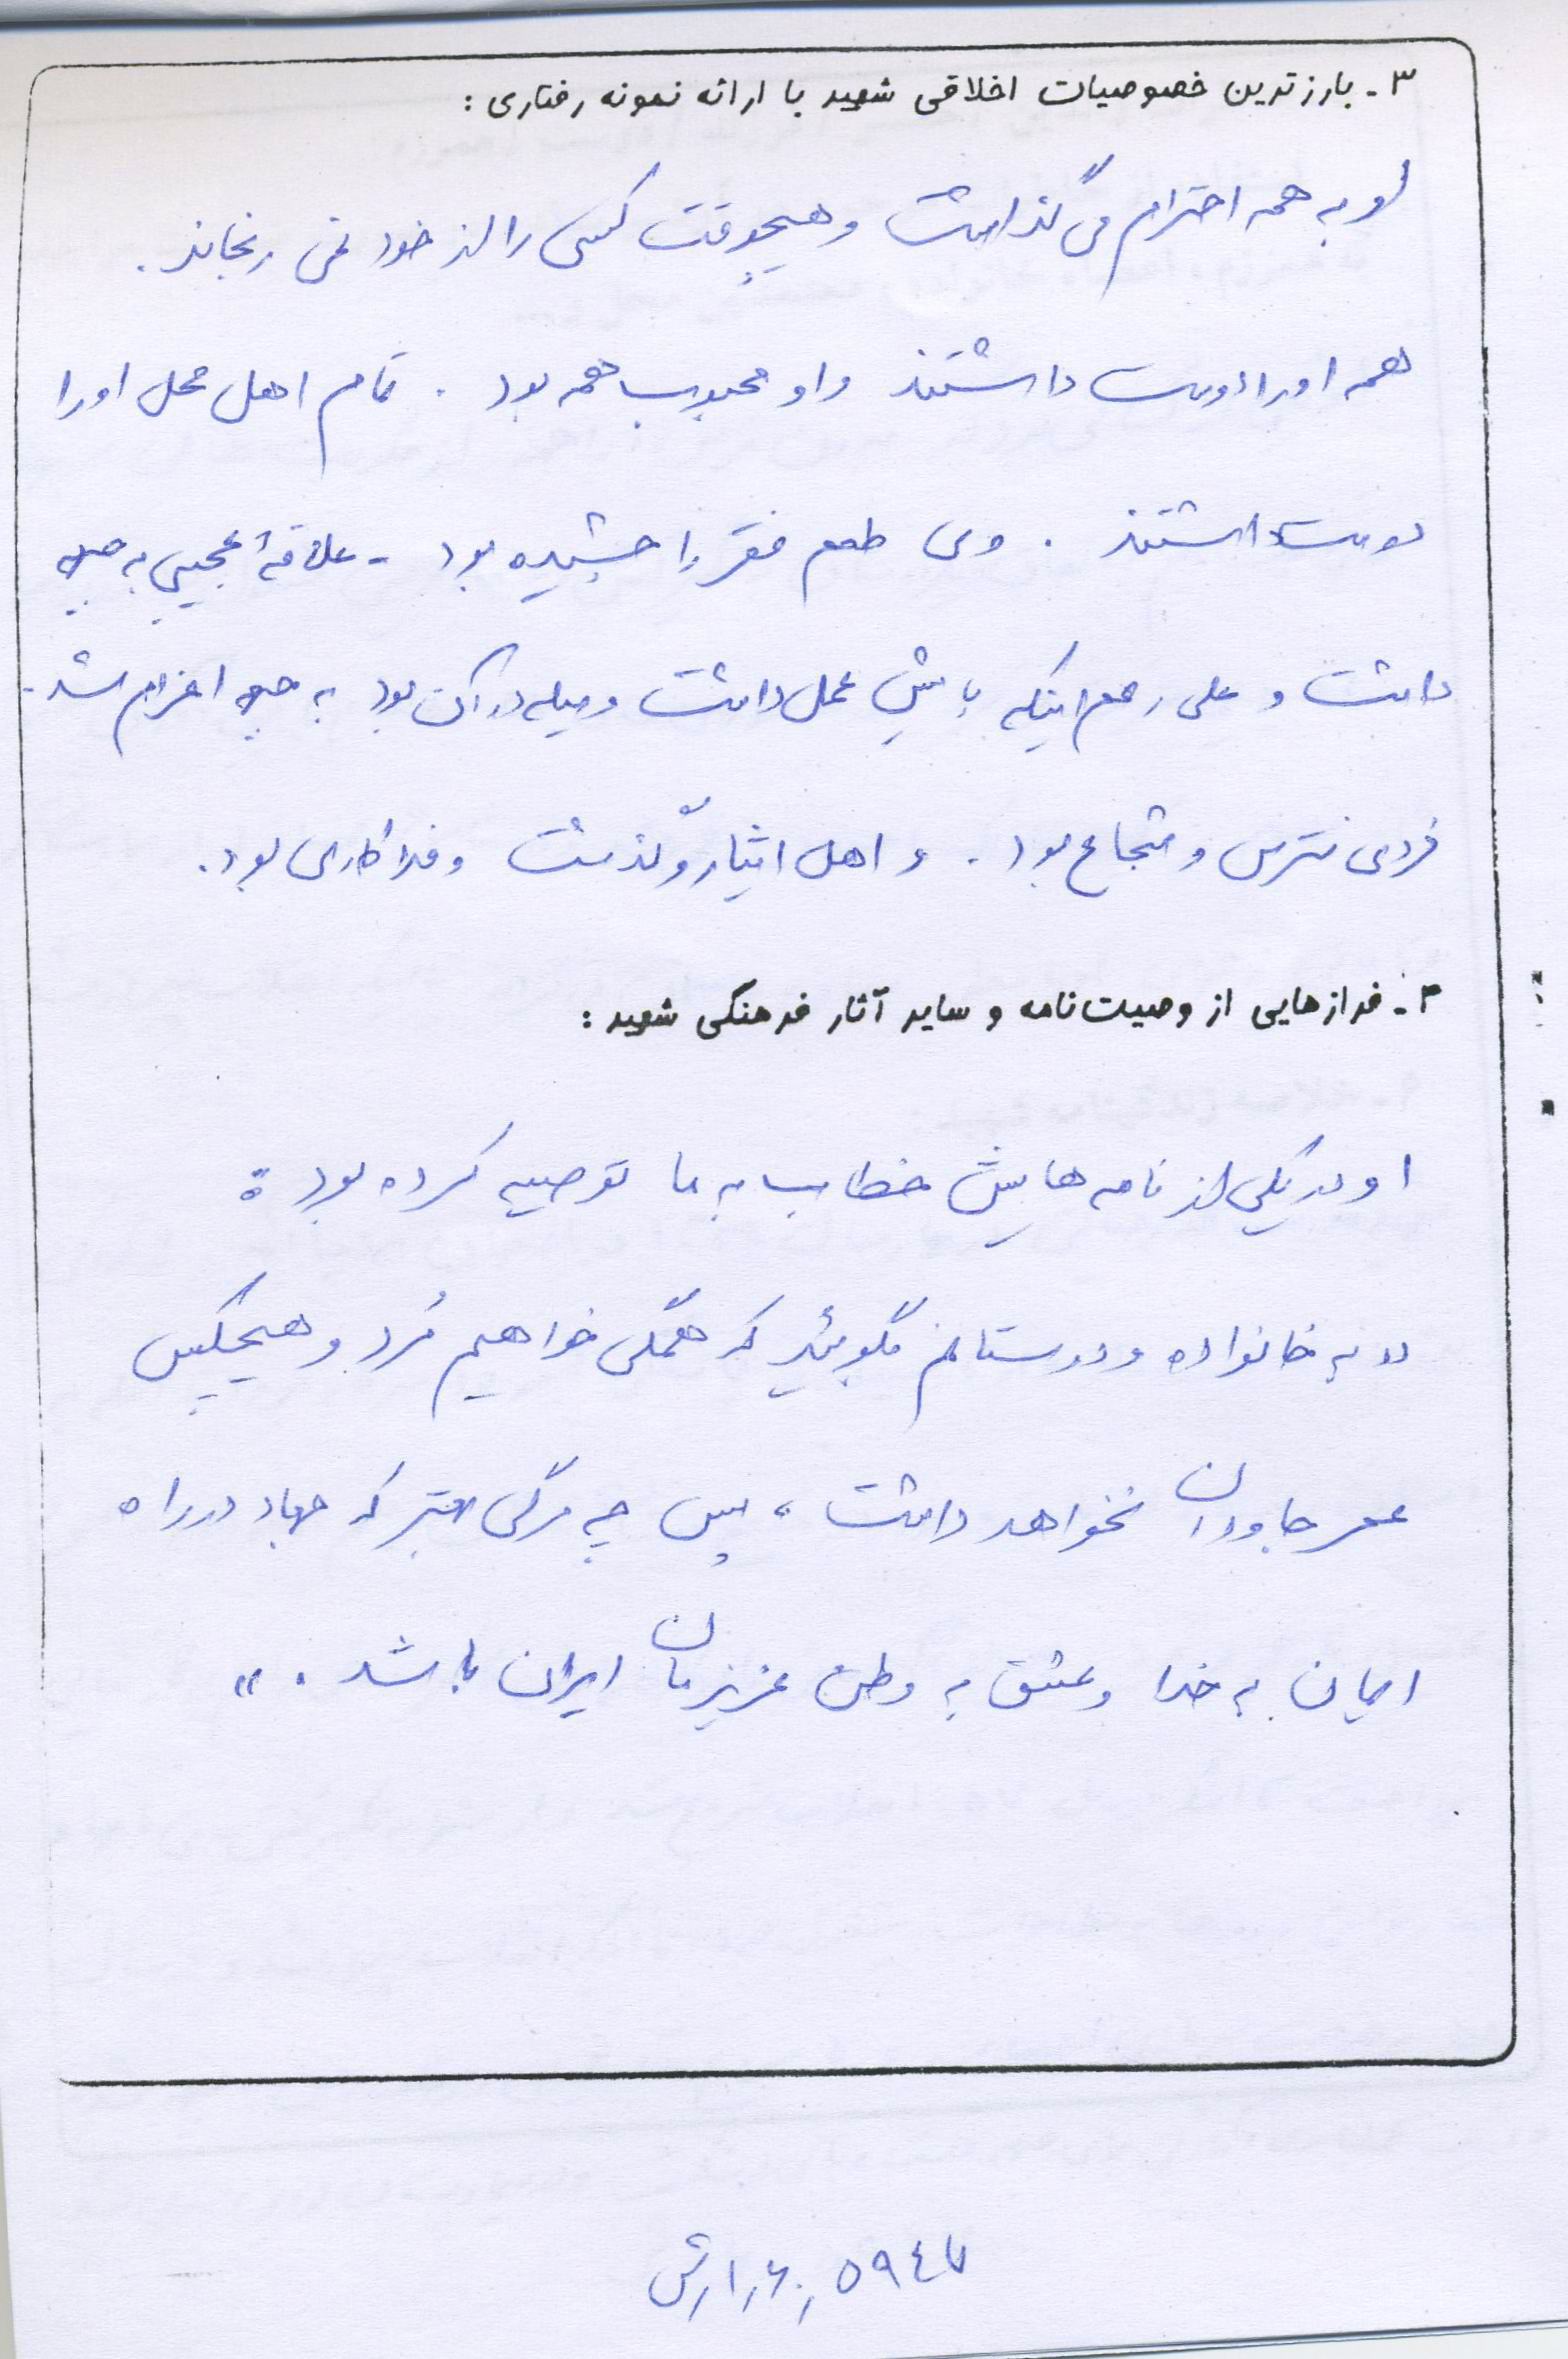 ۳ـ بارزترین خصوصیات اخلاقی شهید با ارائه نمونه رفتاری :
او به همه احترام می گذاشت و هیچوقت کسی را از خود نمی رنجاند .
همه او را دوست داشتند و او محبوب همه بود . تمام اهل محل او را
دوست داشتند . وی طعم فقر را چشیده بود - علاقه عجیبی به جبهه
داشت و علی رغم اینکه پایش عمل داشت و میله در آن بود به جبهه اعزام شد .
فردی نترس و شجاع بود . و اهل ایثار و گذشت و فداکاری بود .
۴ـ فرازهایی از وصیت‌نامه و سایر آثار فرهنگی شهید :
او در یکی از نامه هایش خطاب به ما توصیه کرده بود :
« به خانواده و دوستانم بگویید که همگی خواهیم مُرد و هیچکس
عمر جاودان نخواهد داشت ، پس چه مرگی بهتر که جهاد در راه
ایمان به خدا و عشق به وطن عزیزمان ایران باشد . »